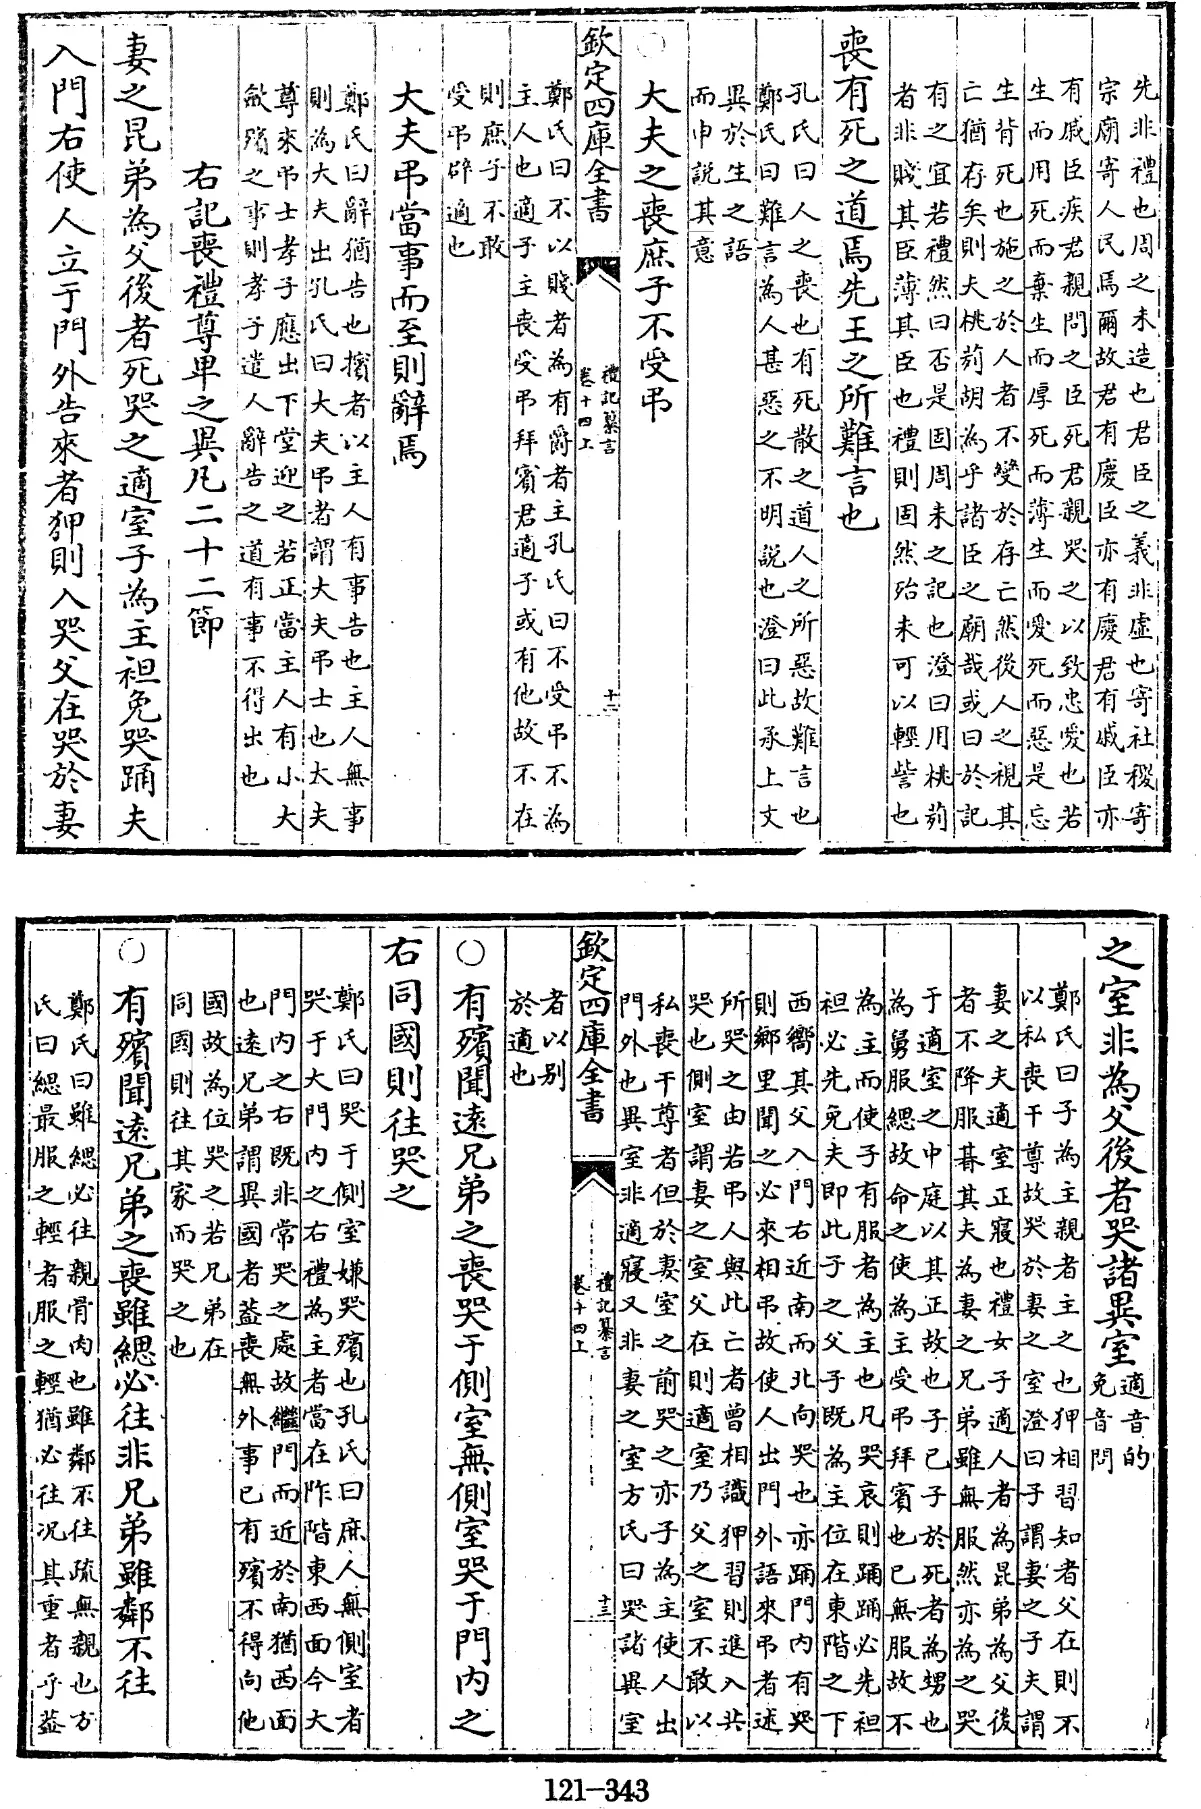 先非禮也周之末造也君臣之義非虛也寄社稷寄
宗廟寄人民焉爾故君有慶臣亦有慶君有戚臣亦
有戚臣疾君親問之臣死君親哭之以致忠愛也若
生而用死而棄生而厚死而薄生而愛死而惡是忘
生背死也施之於人者不變於存亡然後人之視其
亡猶存矣則夫桃茢胡為乎諸臣之廟哉或曰於記
有之宜若禮然曰否是固周末之記也澄曰用桃茢
者非賤其臣薄其臣也禮則固然殆未可以輕訾也
喪有死之道焉先王之所難言也
孔氏曰人之喪也有死散之道人之所惡故難言也
鄭氏曰難言為人甚惡之不明說也澄曰此承上文
異於生之語
而申說其意
○大夫之喪庶子不受弔
欽定四庫全書
禮記纂言
卷十四上
十二
鄭氏曰不以賤者為有爵者主孔氏曰不受弔不為
主人也適子主喪受弔拜賓君適子或有他故不在
則庶子不敢
受弔辟適也
大夫弔當事而至則辭焉
鄭氏曰辭猶告也擯者以主人有事告也主人無事
則為大夫出孔氏曰大夫弔者謂大夫弔士也大夫
尊來弔士孝子應出下堂迎之若正當主人有小大
斂殯之事則孝子遣人辭告之道有事不得出也
右記喪禮尊卑之異凡二十二節
妻之昆弟為父後者死哭之適室子為主袒免哭踊夫
入門右使人立于門外告來者狎則入哭父在哭於妻
之室非為父後者哭諸異室
適音的
免音問
鄭氏曰子為主親者主之也狎相習知者父在則不
以私喪干尊故哭於妻之室澄曰子謂妻之子夫謂
妻之夫適室正寢也禮女子適人者為昆弟為父後
者不降服朞其夫為妻之兄弟雖無服然亦為之哭
于適室之中庭以其正故也子己子於死者為甥也
為舅服緦故命之使為主受弔拜賓也已無服故不
為主而使子有服者為主也凡哭哀則踊踊必先袒
袒必先免夫即此子之父子既為主位在東階之下
西嚮其父入門右近南而北向哭也亦踊門內有哭
則鄉里聞之必來相弔故使人出門外語來弔者述
所哭之由若弔人與此亡者曾相識狎習則進入共
哭也側室謂妻之室父在則適室乃父之室不敢以
私喪干尊者但於妻室之前哭之亦子為主使人出
門外也異室非適寢又非妻之室方氏曰哭諸異室
欽定四庫全書
禮記纂言
卷十四上
十三
者以別
於適也
○有殯聞遠兄弟之喪哭于側室無側室哭于門內之
右同國則往哭之
鄭氏曰哭于側室嫌哭殯也孔氏曰庶人無側室者
哭于大門內之右禮為主者當在阼階東西面今大
門內之右既非常哭之處故繼門而近於南猶西面
也遠兄弟謂異國者蓋喪無外事已有殯不得向他
國故為位哭之若兄弟在
同國則往其家而哭之也
○有殯聞遠兄弟之喪雖緦必往非兄弟雖鄰不往
鄭氏曰雖緦必往親骨肉也雖鄰不往疏無親也方
氏曰緦最服之輕者服之輕猶必往況其重者乎蓋
121-343